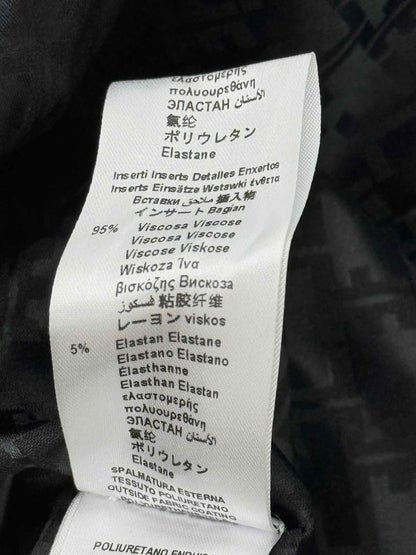 ελαστομερής
πολυουρεθάνη
ЭЛАСТАН الأستان
氨纶
ポリウレタン
Elastane
Inserti Inserts Detalles Enxertos
Inserts Einsätze Wstawki ένθετα
Вставки ملاحق 插入物
インサート Bagian
95% Viscosa Viscose
Viscosa Viscose
Viscose Viskose
Wiskoza Ίνα
βισκόζης Вискоза
فسكوز 粘胶纤维
レーヨン viskos
5% Elastan Elastane
Elastano Elastano
Élasthanne
Elasthan Elastan
ελαστομερής
πολυουρεθάνη
ЭЛАСТАН الأستان
氨纶
ポリウレタン
Elastane
SPALMATURA ESTERNA
TESSUTO POLIURETANO
OUTSIDE FABRIC COATING
POLIURETANO